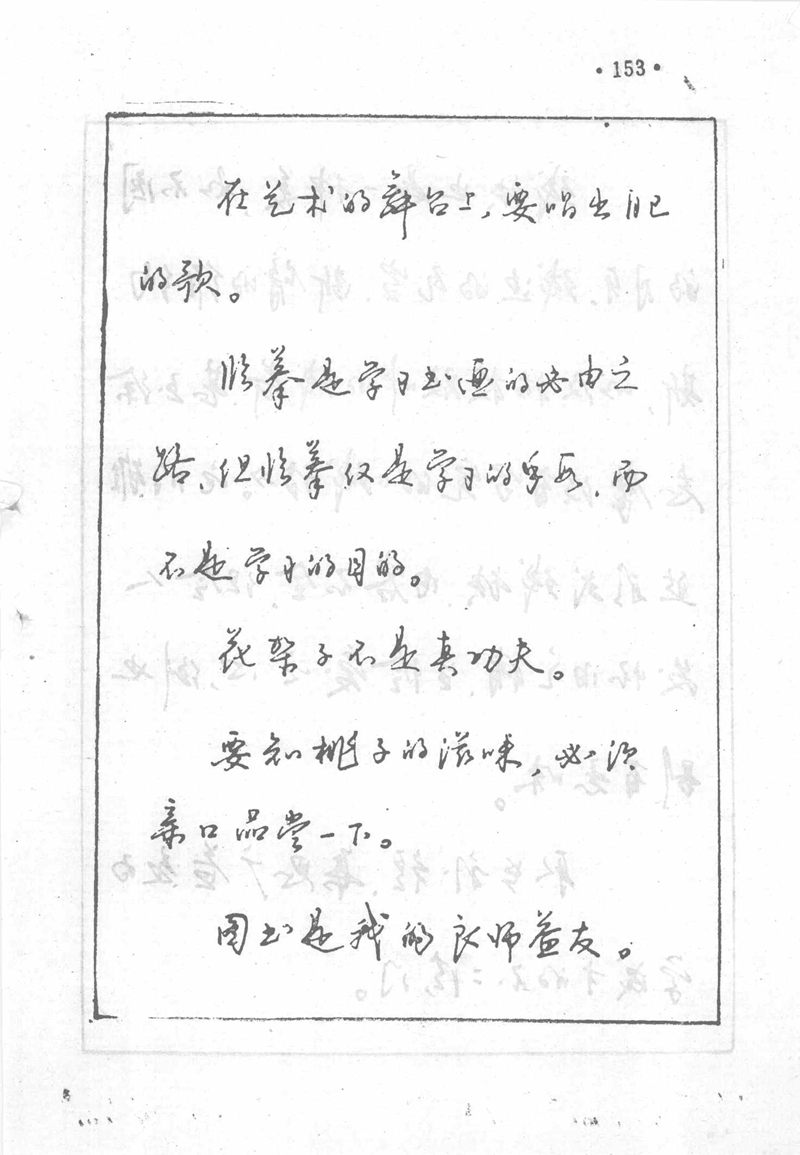 ·153·
在艺术的舞台上，要唱出自己
的歌。
临摹是学习书画的必由之
路，但临摹仅是学习的手段，而
不是学习的目的。
花架子不是真功夫。
要知桃子的滋味，必须
亲口品尝一下。
图书是我的良师益友。